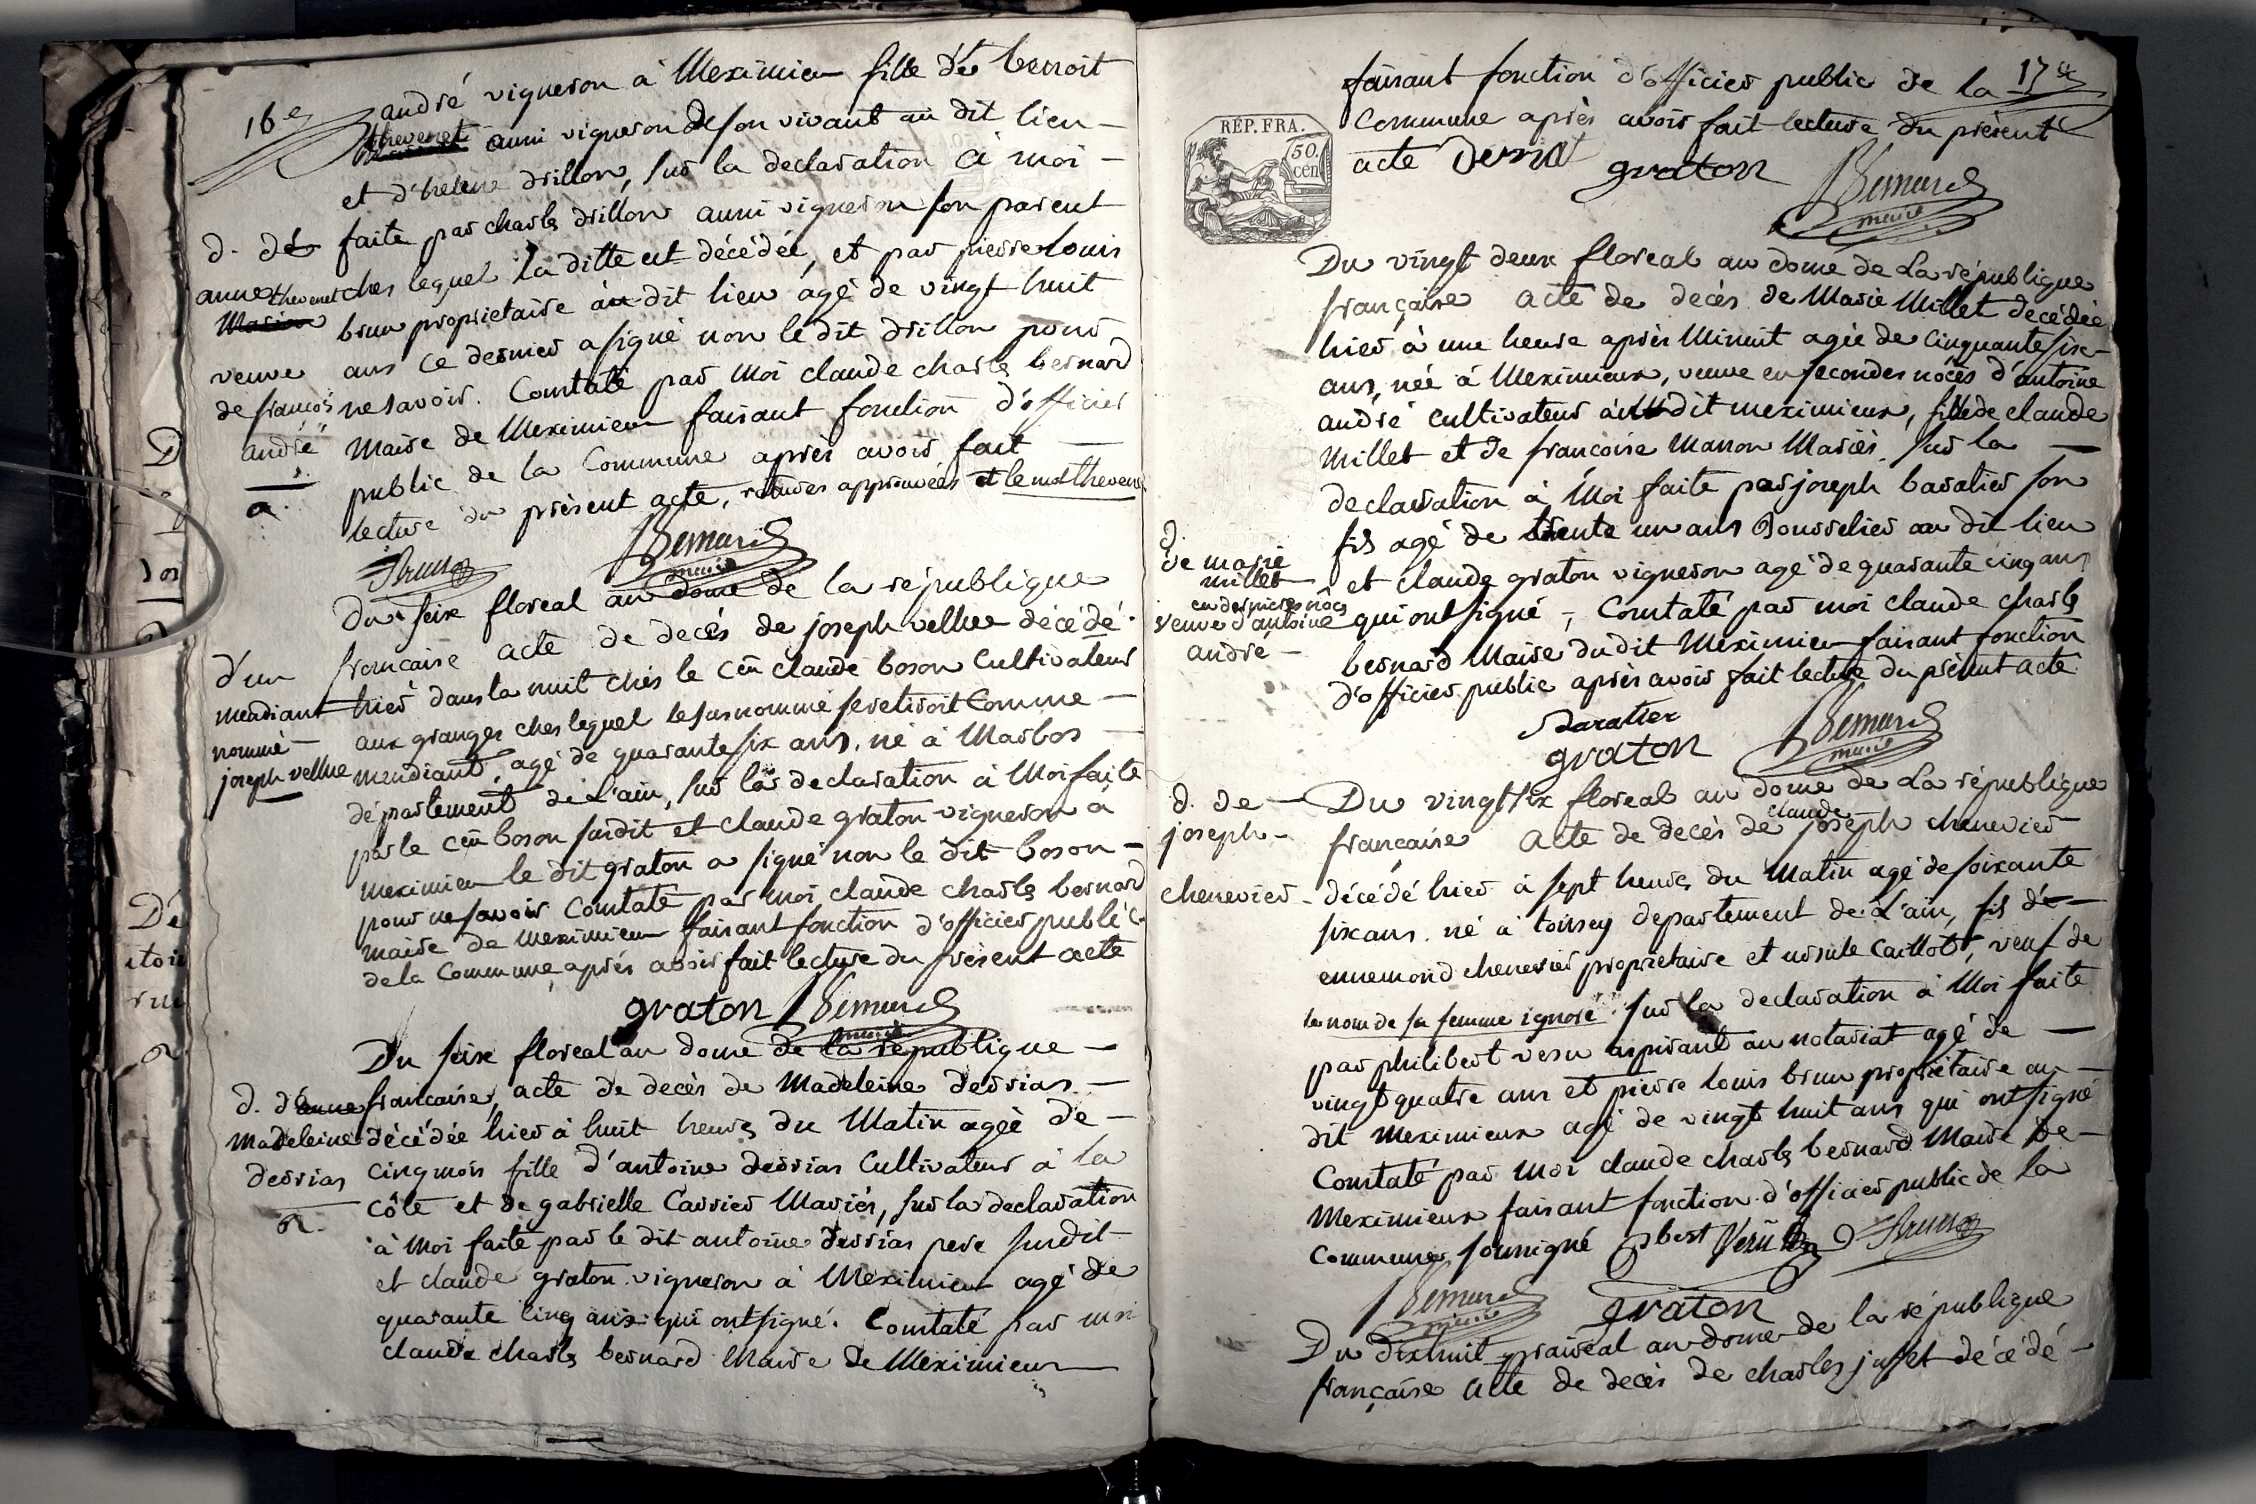 16e
andré vigneron à Meximieu fille de benoit
thevenet aussi vigneron de son vivant au dit lieu
et d'helene drillon, sur la declaration à moi
faite par charle drillon aussi vigneron son parent
ches lequel la ditte est décédée, et par pierre louis
brun proprietaire au dit lieu agé de vingt huit
ans ce dernier a signé non le dit drillon pour
ne savoir. Constaté par Moi claude charle bernard
maire de Meximieu faisant fonction d'officier
public de la Commune après avoir fait
lecture du présent acte, ratures approuvées et le mot thevenet
d. de
anne thevenet
veuve
de francois
andré
a.
Brun
Bernard
maire
Du seize floreal an dome de la république
francaise acte de decès de joseph vellue décédé
hier dans la nuit ches le cen claude boson Cultivateur
aux granges ches lequel le susnommé se retiroit Comme
mendiant, agé de quarante six ans, né à Marbos
département de L'ain, sur la declaration à Moi faite
par le cen boson surdit et claude graton vigneron à
meximieu le dit graton a signé non le dit boson
pour ne savoir Constaté par moi claude charle bernard
maire de meximieu faisant fonction d'officier public
de la Commune, après avoir fait lecture du présent acte
d'un
mendiant
nommé
joseph vellue
graton Bernard
maire
Du seize floreal an dome de la république
francaise, acte de decès de Madeleine derrias
décédée hier à huit heures du Matin agée de
cinq mois fille d'antoine derrias Cultivateur à la
côte et de gabrielle Carrier Mariés, sur la declaration
à Moi faite par le dit antoine derrias pere surdit
et claude graton vigneron à Meximieu agé de
quarante cinq ans qui ont signé. Constaté par moi
claude charle bernard Maire de Meximieux
d. de
Madeleine
derrias
a.
17e
faisant fonction d'officier public de la
Commune après avoir fait lecture du présent
acte
graton
Bernard
maire
RÉP. FRA.
50.
cen
Du vingt deux floreal an dome de La république
française acte de decès de Marie Millet décédée
hier à une heure après Minuit agée de Cinquante six
ans, née à Meximieux, veuve en secondes noces d'antoine
andré cultivateur au dit meximieux, fille de claude
Millet et de francoise Manon Mariés. sur la
declaration à Moi faite par joseph baratier son
fils agé de trente un ans Bourrelier au dit lieu
et claude graton vigneron agé de quarante cinq ans
qui ont signé, Constaté par moi claude charle
bernard Maire dudit Meximieu faisant fonction
d'officier public après avoir fait lecture du présent acte
d.
de marie
millet
en dernieres nôces
veuve d'antoine
andré
Baratier
graton
Bernard
maire
Du vingt six floreal an dome de La république
claude
française Acte de decès de joseph chenevier
décédé hier à sept heures du Matin agé de soixante
six ans, né à toissey departement de L'ain, fils de
ennemond chenevier proprietaire et ursule Caillot, veuf de
le nom de sa femme ignoré. sur la declaration à Moi faite
par philibert veru aspirant au notariat agé de
vingt quatre ans et pierre louis brun proprietaire au
dit Meximieux agé de vingt huit ans qui ont signé
Constaté par moi claude charle bernard Maire de
Meximieux faisant fonction d'officier public de la
Commune soussigné
d. de
joseph
chenevier
pbert Brun
Bernard
maire
graton
Du dixhuit prairéal an dome de la république
française Acte de decès de charles juffet décédé